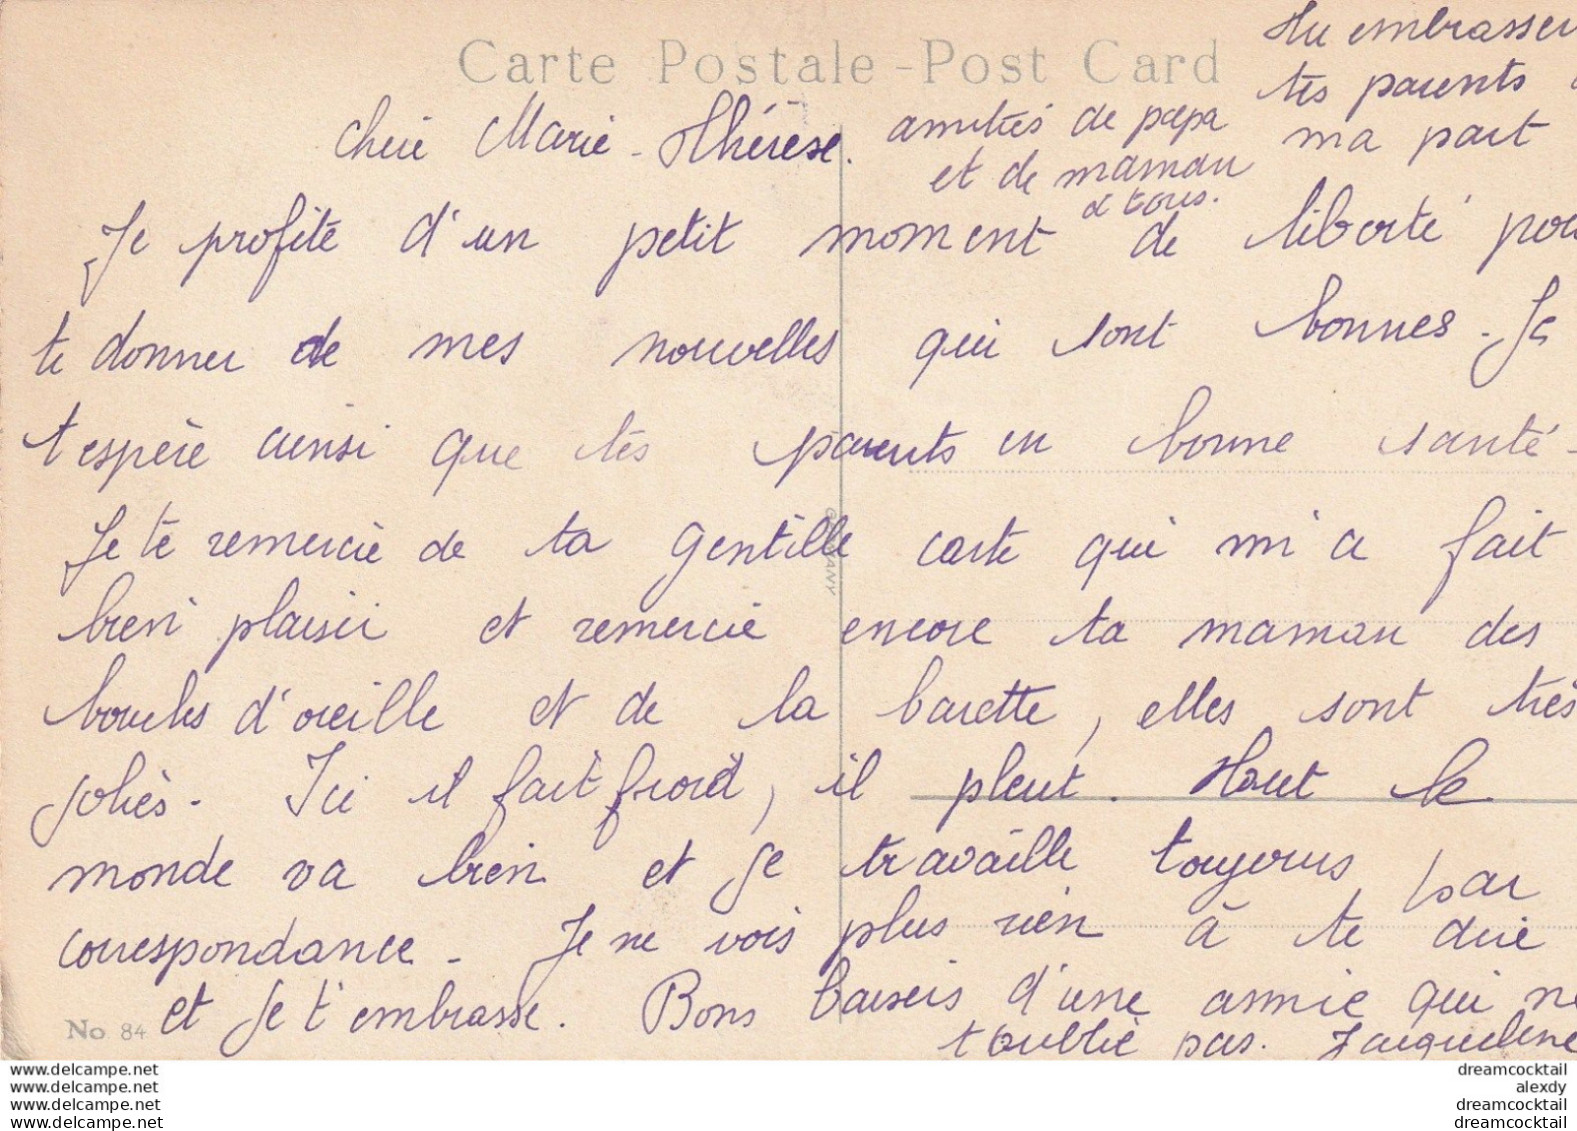 Carte Postale - Post Card
Tu embrasser
tes parents
ma part
amitiés de papa
et de maman
à tous.
Chère Marie-Thérèse.
Je profite d'un petit moment de liberté pour
te donner de mes nouvelles qui sont bonnes. Je
t'espère ainsi que tes parents en bonne santé.
Je te remercie de ta gentille carte qui m'a fait
bien plaisir et remercie encore ta maman des
boucles d'oreille et de la barette, elles sont très
jolies. Ici il fait froid, il pleut. Tout le
monde va bien et je travaille toujours par
correspondance. Je ne vois plus rien à te dire
et je t'embrasse. Bons baisers d'une amie qui ne
t'oublie pas. Jacqueline
No 84
www.delcampe.net
www.delcampe.net
www.delcampe.net
www.delcampe.net
dreamcocktail
alexdy
dreamcocktail
dreamcocktail